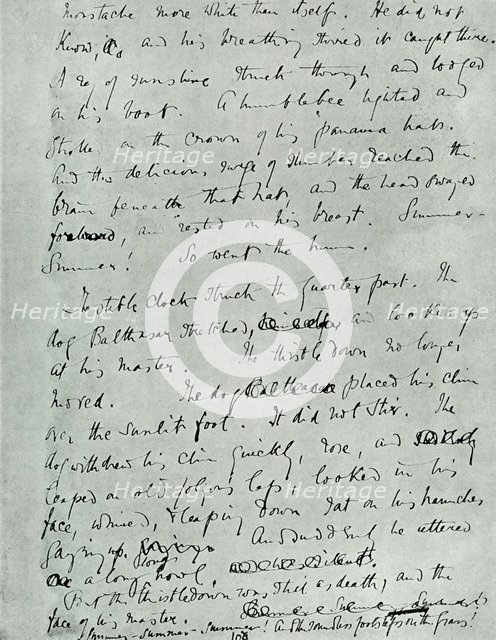 moustache more white than itself. He did not
know, and his breathing stirred it caught there.
A ray of sunshine struck through and lodged
on his boot. A humblebee lighted and
strolled on the crown of his panama hat.
And the delicious surge of slumber reached the
brain beneath that hat, and the head swayed
forward, and rested on his breast. Summer-
Summer! So went the hum.
The stable clock struck the quarter past. The
dog Balthasar stretched, and looked up
at his master. The thistledown no longer
moved. The dog placed his chin
over the sunlit foot. It did not stir. The
dog withdrew his chin quickly, rose, and
leaped on old Jolyon's lap, looked in his
face, whined, & leaping down sat on his haunches
gazing up. And suddenly he uttered
a long long howl.
But the thistledown was still as death, and the
face of his master.
Summer-summer-summer! And the soundless footsteps on the grass!
Heritage
Heritage
Heritage
Heritage
Heritage
Heritage
©